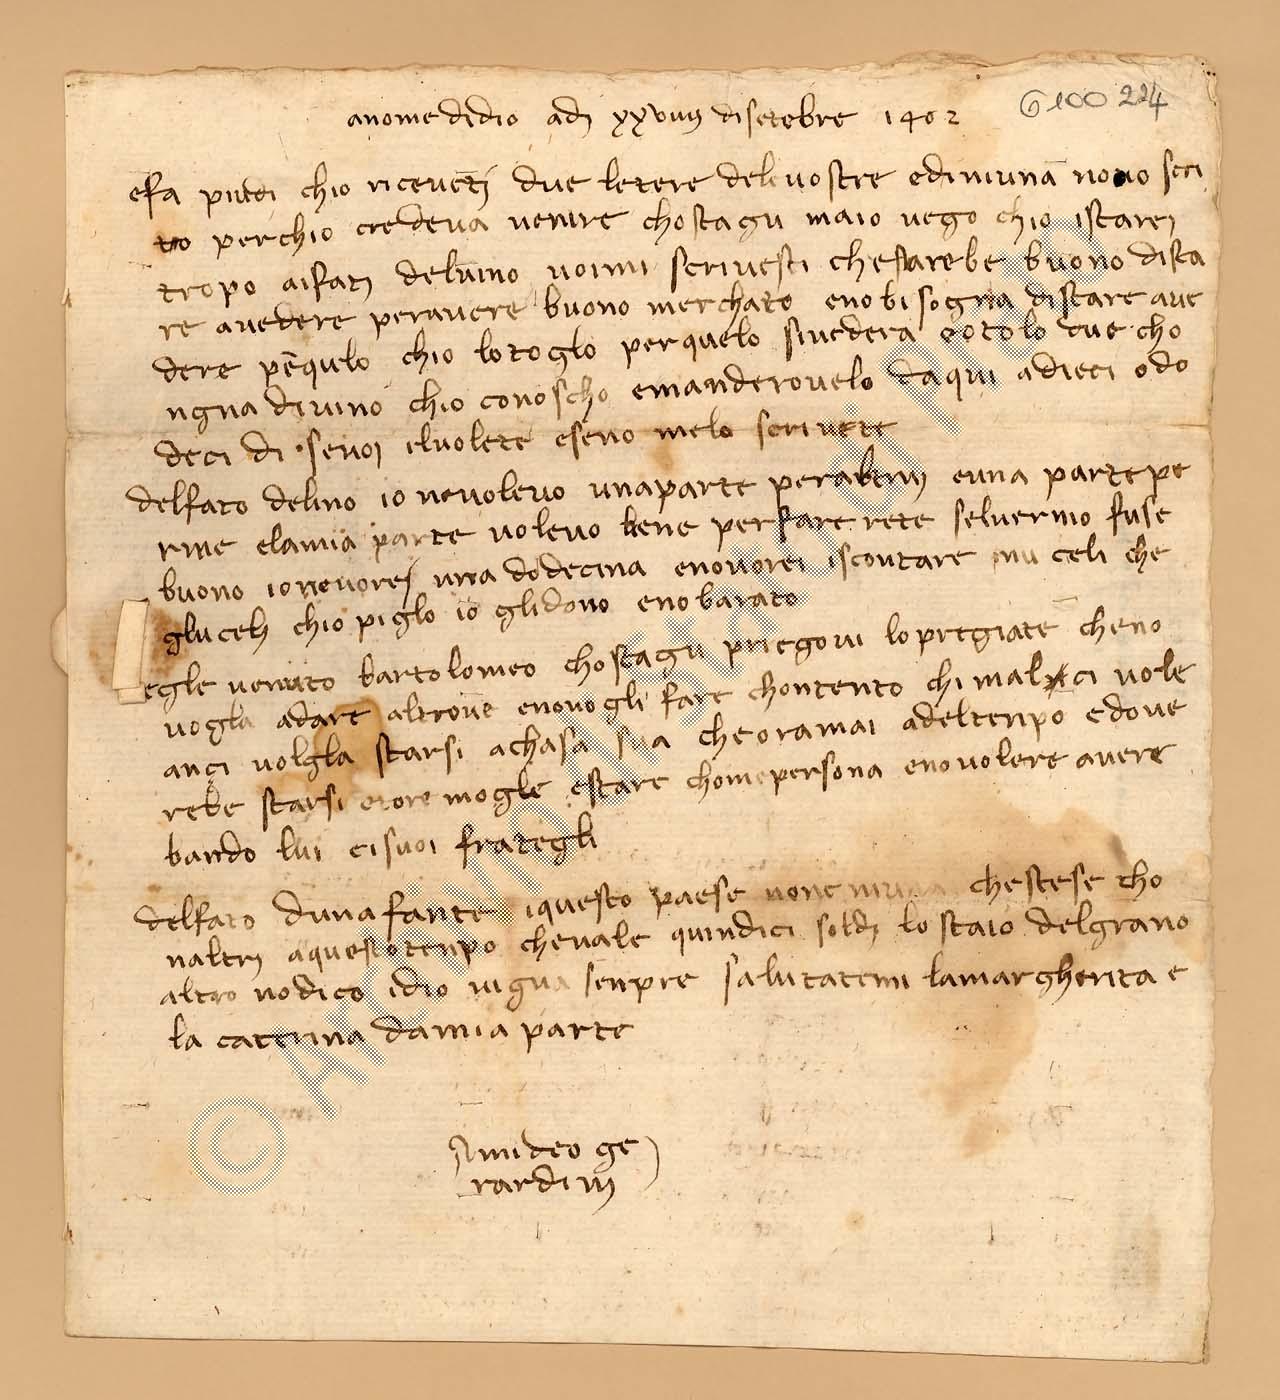 anome didio adj xxviiij disetebre 1402
6100 224
efa piudi chio ricevetj due letere dele vostre e diniunā nono scri
to perchio credeva venire chostagu maio vego chio istarei
tropo aifatj delvino voi mi scrivesti che sarebe buono dista
re avedere peravere buono merchato enobisogna distare ave
dere pēqulo chio lotoglo perquelo sivedera eotolo due cho
ngna divino chio conoscho emanderovelo daqui adieci odo
deci di sevoj ilvolete eseno melo scrivete
delfato delino io nevolevo unaparte peraltruj euna parte pe
rme elamia parte volevo bene perfare rete selvermo fuse
buono ionevorej una dodecina enovorei iscontare che
gluceli chio piglo io glidono enobarato
egle venuto bartolomeo chostagu priegovi lopregiate cheno
vogla adare altrove enovogli fare chontento chi mal ci vole
ançi volgla starsi achasa sua cheoramai adeltenpo edove
rebe starsi etore mogle estare chomepersona enovolere avere
bando lui eisuoi frategli
delfato dunafante iquesto paese chestese cho
naltrj aquestotenpo chevale quindici soldj lo staio delgrano
altro nodico idio vigua senpre salutatemi lamargherita e
la caterina damia parte
Amideo ge
rardinj
© ARCHIVIO DI STATO DI PRATO